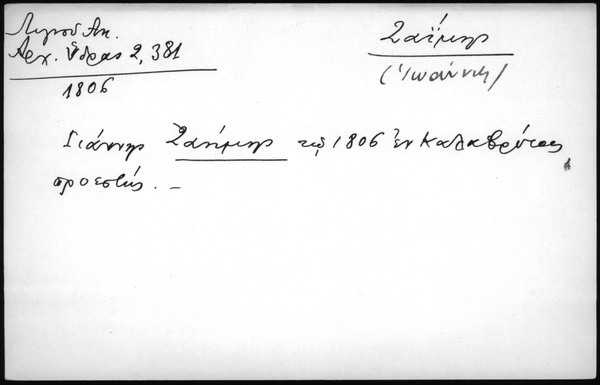 Λιγνοῦ Ἀν.
Ἀρχ. Ὕδρας 2, 381
1806
Ζαΐμης
(Ἰωάννης)
Γιάννης Ζαήμης τῷ 1806 ἐν Καλαβρύτοις
προεστώς. —